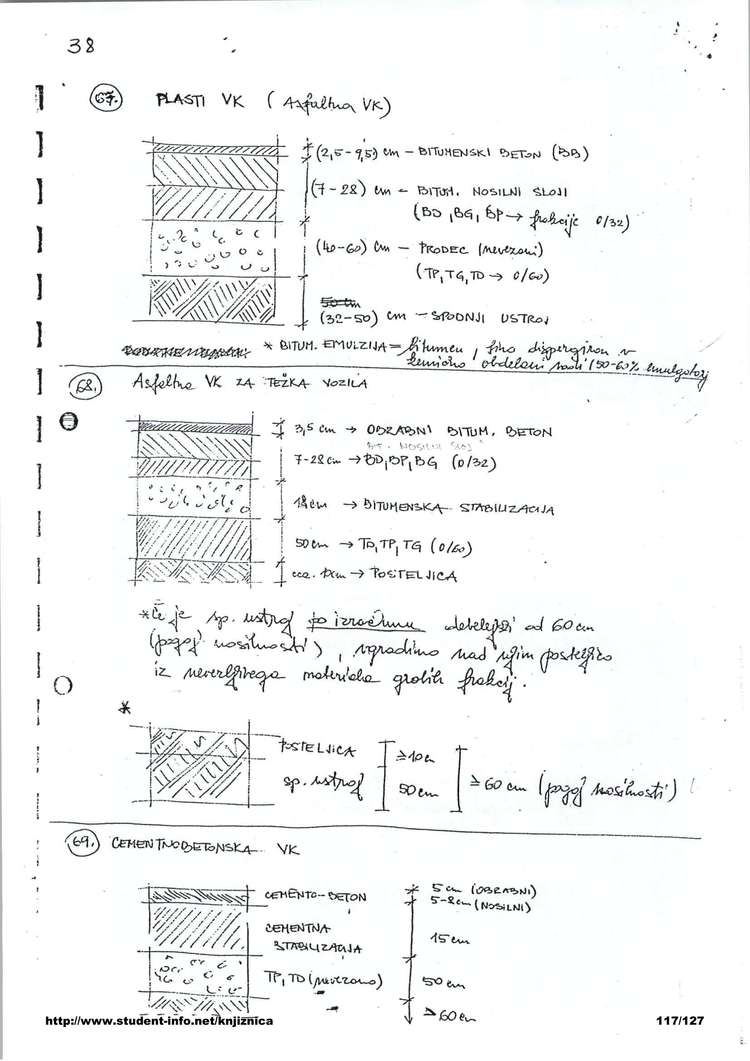 38
67. PLASTI VK (Asfaltna VK)
(2,5-9,5) cm - BITUMENSKI BETON (BB)
(7-28) cm - BITUM. NOSILNI SLOJI
(BD, BG, BP → frakcije 0/32)
(40-60) cm - PRODEC (nevezani)
(TP, TG, TD → 0/60)
(32-50) cm - SPODNJI USTROJ
* BITUM. EMULZIJA = bitumen, fino dispergiran v
kemično obdelani vodi (50-60% emulgatorj
68. Asfaltna VK ZA TEŽKA VOZILA
3,5 cm → OBRABNI BITUM. BETON
BIT. NOSILNI SLOJ
7-28 cm → BD, BP, BG (0/32)
18 cm → BITUMENSKA STABILIZACIJA
50 cm → TD, TP, TG (0/60)
cca. cm → POSTELJICA
* Če je sp. ustroj po izračunu debelejši od 60 cm
(pogoj nosilnosti), vgradimo nad njim posteljico
iz nevezljivega materiala grobih frakcij.
*
POSTELJICA ≥10cm
sp. ustroj 50 cm ≥ 60 cm (pogoj nosilnosti)
69. CEMENTNOBETONSKA VK
CEMENTO-BETON 5 cm (OBRABNI)
5-8 cm (NOSILNI)
CEMENTNA
STABILIZACIJA 15 cm
TP, TD (nevezano) 50 cm
≥ 60 cm
http://www.student-info.net/knjiznica 117/127